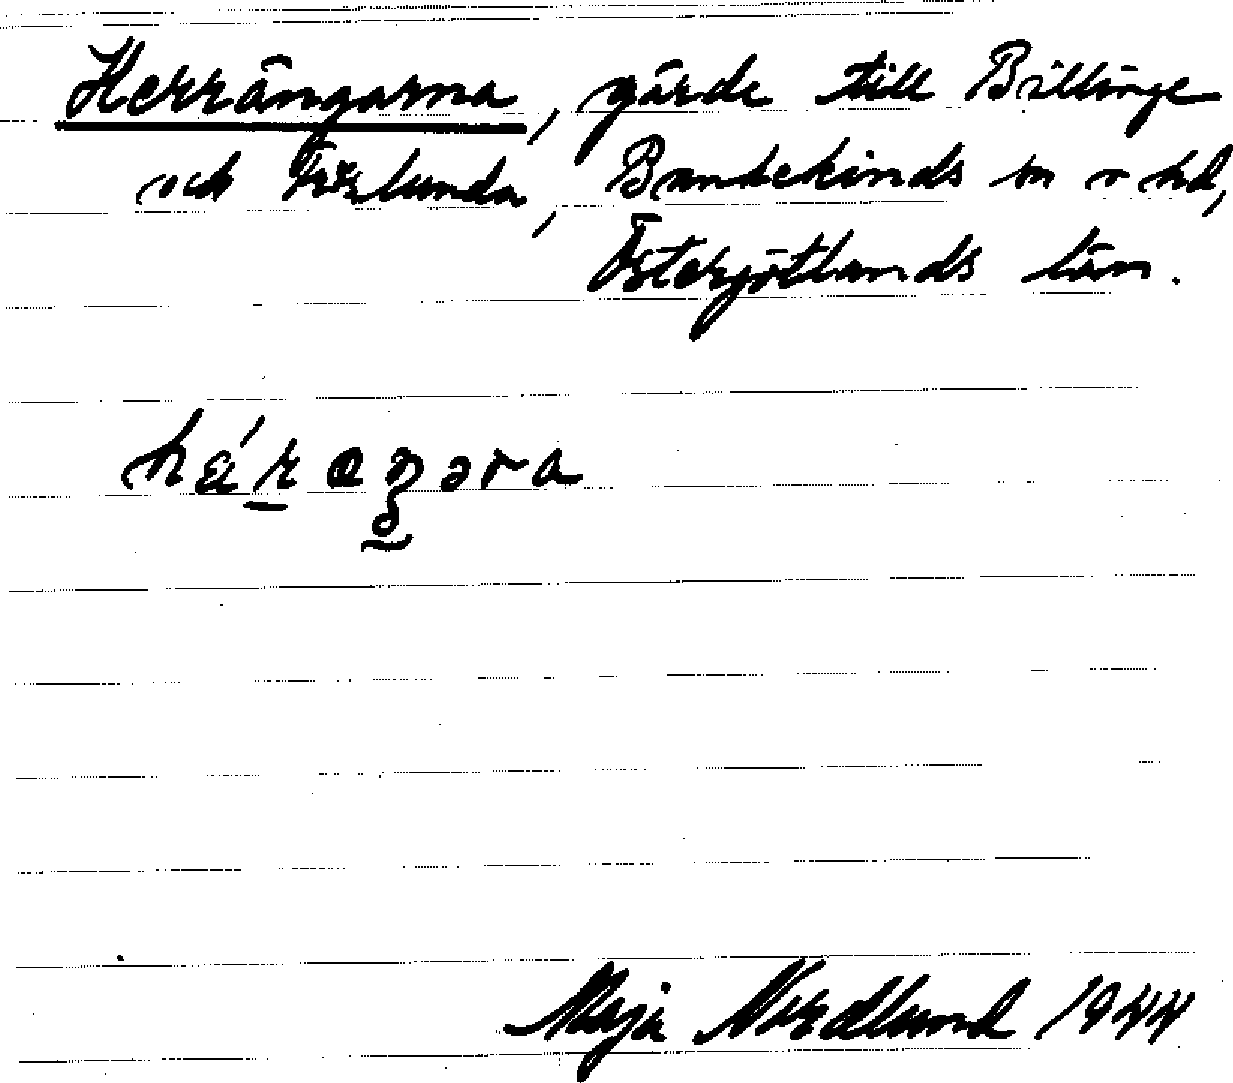 Herrängarna, gärde till Billinge
och Törlunda, Bankekinds sn o hd,
Östergötlands län.
Maja Nordlund 1944